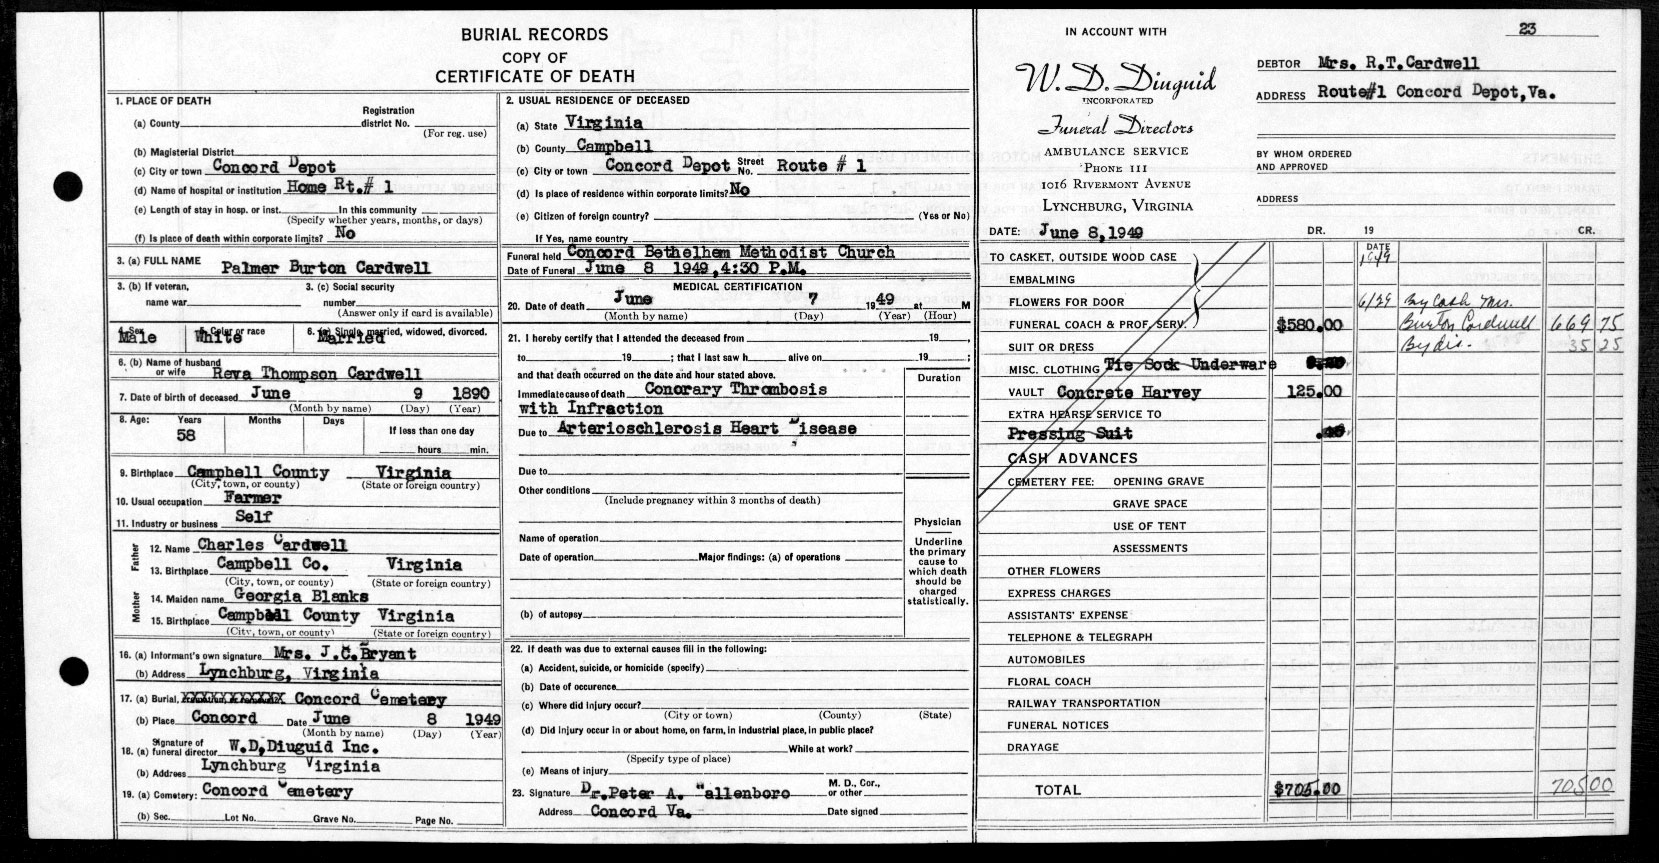 BURIAL RECORDS
COPY OF
CERTIFICATE OF DEATH
1. PLACE OF DEATH
Registration
(a) County district No.
(For reg. use)
(b) Magisterial District
(c) City or town Concord Depot
(d) Name of hospital or institution Home Rt.# 1
(e) Length of stay in hosp. or inst. In this community
(Specify whether years, months, or days)
(f) Is place of death within corporate limits? No
3. (a) FULL NAME Palmer Burton Cardwell
3. (b) If veteran, 3. (c) Social security
name war number
(Answer only if card is available)
4. Sex 5. Color or race 6. (a) Single, married, widowed, divorced.
Male White Married
6. (b) Name of husband
or wife Reva Thompson Cardwell
7. Date of birth of deceased June 9 1890
(Month by name) (Day) (Year)
8. Age: Years Months Days If less than one day
58
hours min.
9. Birthplace Campbell County Virginia
(City, town, or county) (State or foreign country)
10. Usual occupation Farmer
11. Industry or business Self
Father
12. Name Charles Cardwell
13. Birthplace Campbell Co. Virginia
(City, town, or county) (State or foreign country)
Mother
14. Maiden name Georgia Blanks
15. Birthplace Campbell County Virginia
(City, town, or county) (State or foreign country)
16. (a) Informant's own signature Mrs. J.C.Bryant
(b) Address Lynchburg, Virginia
17. (a) Burial, XXXXXXXXXXX Concord Cemetery
(b) Place Concord Date June 8 1949
(Month by name) (Day) (Year)
18. (a) Signature of funeral director W.D.Diuguid Inc.
(b) Address Lynchburg Virginia
19. (a) Cemetery: Concord Cemetery
(b) Sec. Lot No. Grave No. Page No.
2. USUAL RESIDENCE OF DECEASED
(a) State Virginia
(b) County Campbell
(c) City or town Concord Depot Street No. Route # 1
(d) Is place of residence within corporate limits? No
(e) Citizen of foreign country? (Yes or No)
If Yes, name country
Funeral held Concord Bethelhem Methodist Church
Date of Funeral June 8 1949,4:30 P.M.
MEDICAL CERTIFICATION
20. Date of death June 7 1949 at M
(Month by name) (Day) (Year) (Hour)
21. I hereby certify that I attended the deceased from 19 ,
to 19 ; that I last saw h alive on 19 ;
and that death occurred on the date and hour stated above.
Duration
Immediate cause of death Conorary Thrombosis
with Infraction
Due to Arterioschlerosis Heart Disease
Due to
Other conditions
(Include pregnancy within 3 months of death)
Name of operation
Date of operation Major findings: (a) of operations
(b) of autopsy
Physician
Underline
the primary
cause to
which death
should be
charged
statistically.
22. If death was due to external causes fill in the following:
(a) Accident, suicide, or homicide (specify)
(b) Date of occurence
(c) Where did injury occur?
(City or town) (County) (State)
(d) Did injury occur in or about home, on farm, in industrial place, in public place?
While at work?
(Specify type of place)
(e) Means of injury
23. Signature Dr.Peter A. Wallenboro M. D., Cor., or other
Address Concord Va. Date signed
IN ACCOUNT WITH
W. D. Diuguid
INCORPORATED
Funeral Directors
AMBULANCE SERVICE
PHONE 111
1016 RIVERMONT AVENUE
LYNCHBURG, VIRGINIA
23
DEBTOR Mrs. R.T.Cardwell
ADDRESS Route#1 Concord Depot,Va.
BY WHOM ORDERED
AND APPROVED
ADDRESS
DATE: June 8,1949 DR. 19 CR.
DATE
1949
TO CASKET, OUTSIDE WOOD CASE
EMBALMING
FLOWERS FOR DOOR 6/29 By Cash Mrs.
FUNERAL COACH & PROF. SERV. $580.00 Burton Cardwell 669 75
SUIT OR DRESS By dis. 35 25
MISC. CLOTHING Tie Sock Underware
VAULT Concrete Harvey 125.00
EXTRA HEARSE SERVICE TO
Pressing Suit
CASH ADVANCES
CEMETERY FEE: OPENING GRAVE
GRAVE SPACE
USE OF TENT
ASSESSMENTS
OTHER FLOWERS
EXPRESS CHARGES
ASSISTANTS' EXPENSE
TELEPHONE & TELEGRAPH
AUTOMOBILES
FLORAL COACH
RAILWAY TRANSPORTATION
FUNERAL NOTICES
DRAYAGE
TOTAL $705.00 705 00